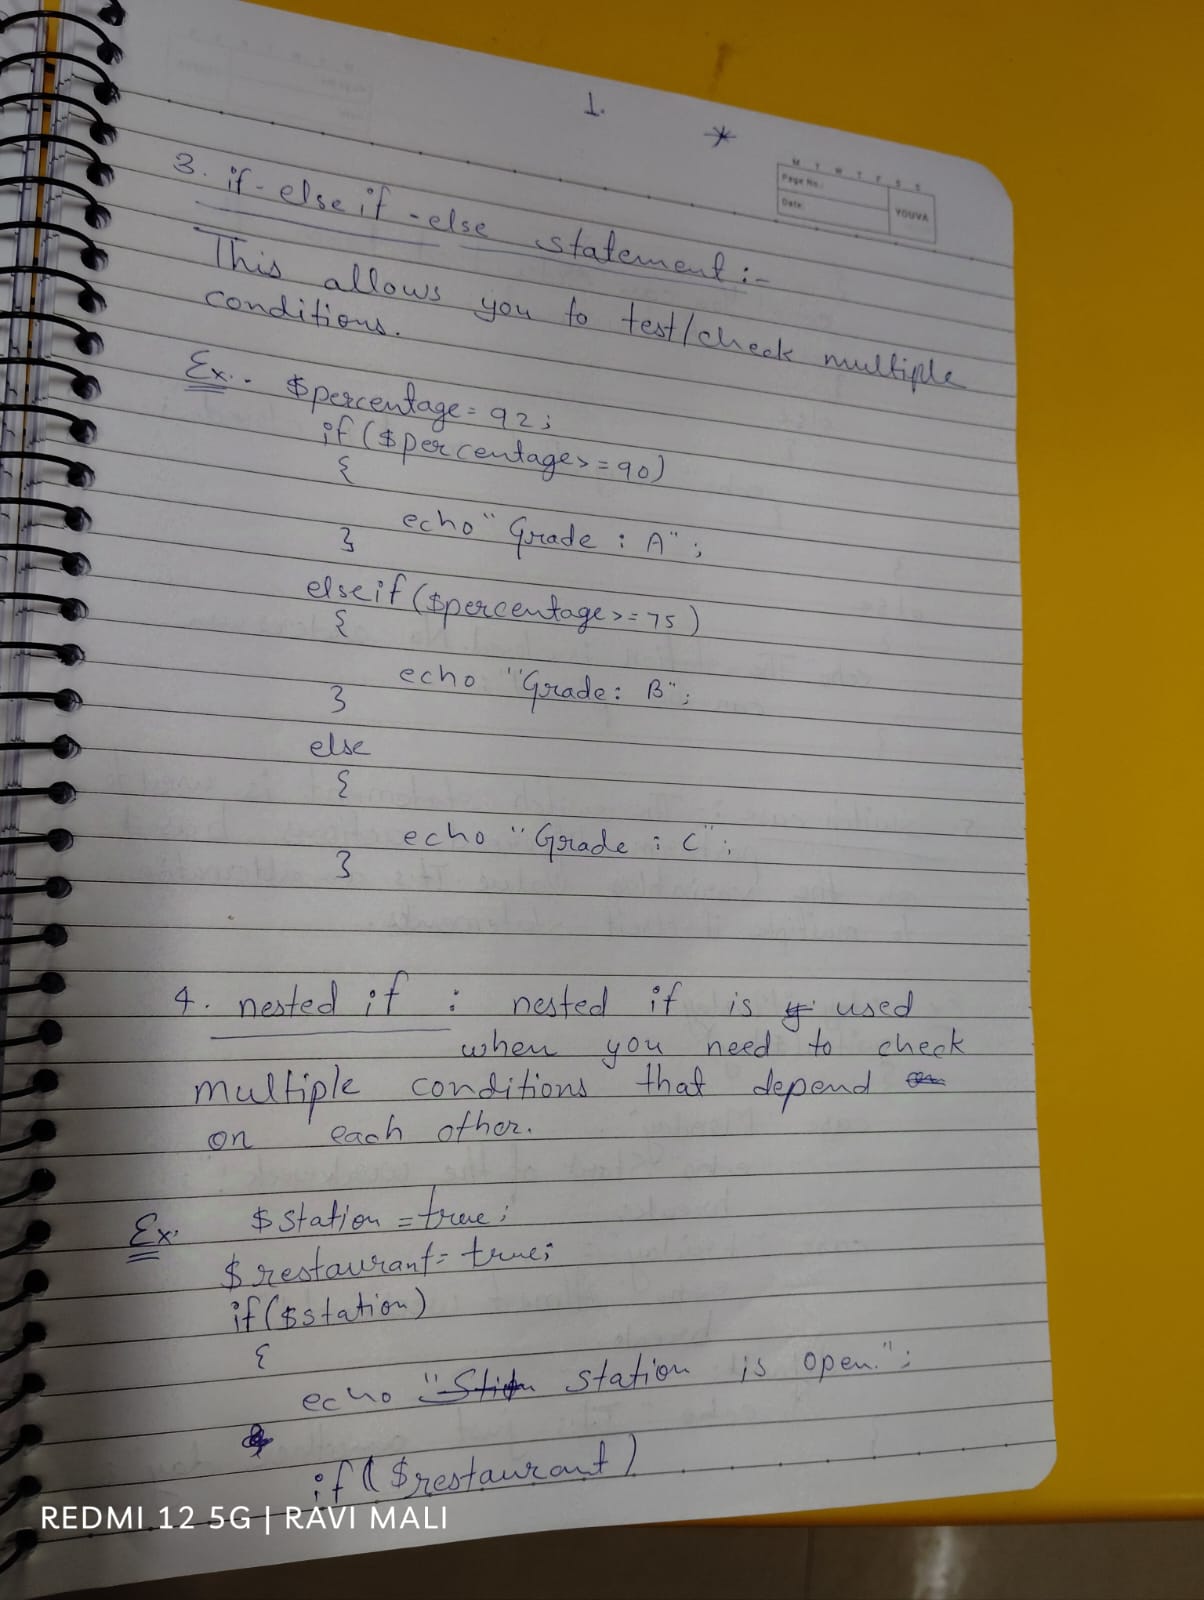 1.
*
M T W T F S S
Page No.:
Date:
YOUVA
3. if-elseif-else statement :-
This allows you to test/check multiple
conditions.
Ex.. $percentage = 92;
if ($percentage >= 90)
{
echo "Grade : A" ;
}
elseif ($percentage >= 75)
{
echo "Grade: B";
}
else
{
echo "Grade : C" ;
}
4. nested if : nested if is used
when you need to check
multiple conditions that depend
on each other.
Ex. $station = true;
$restaurant = true;
if ($station)
{
echo " station is open.";
if ($restaurant)
REDMI 12 5G | RAVI MALI